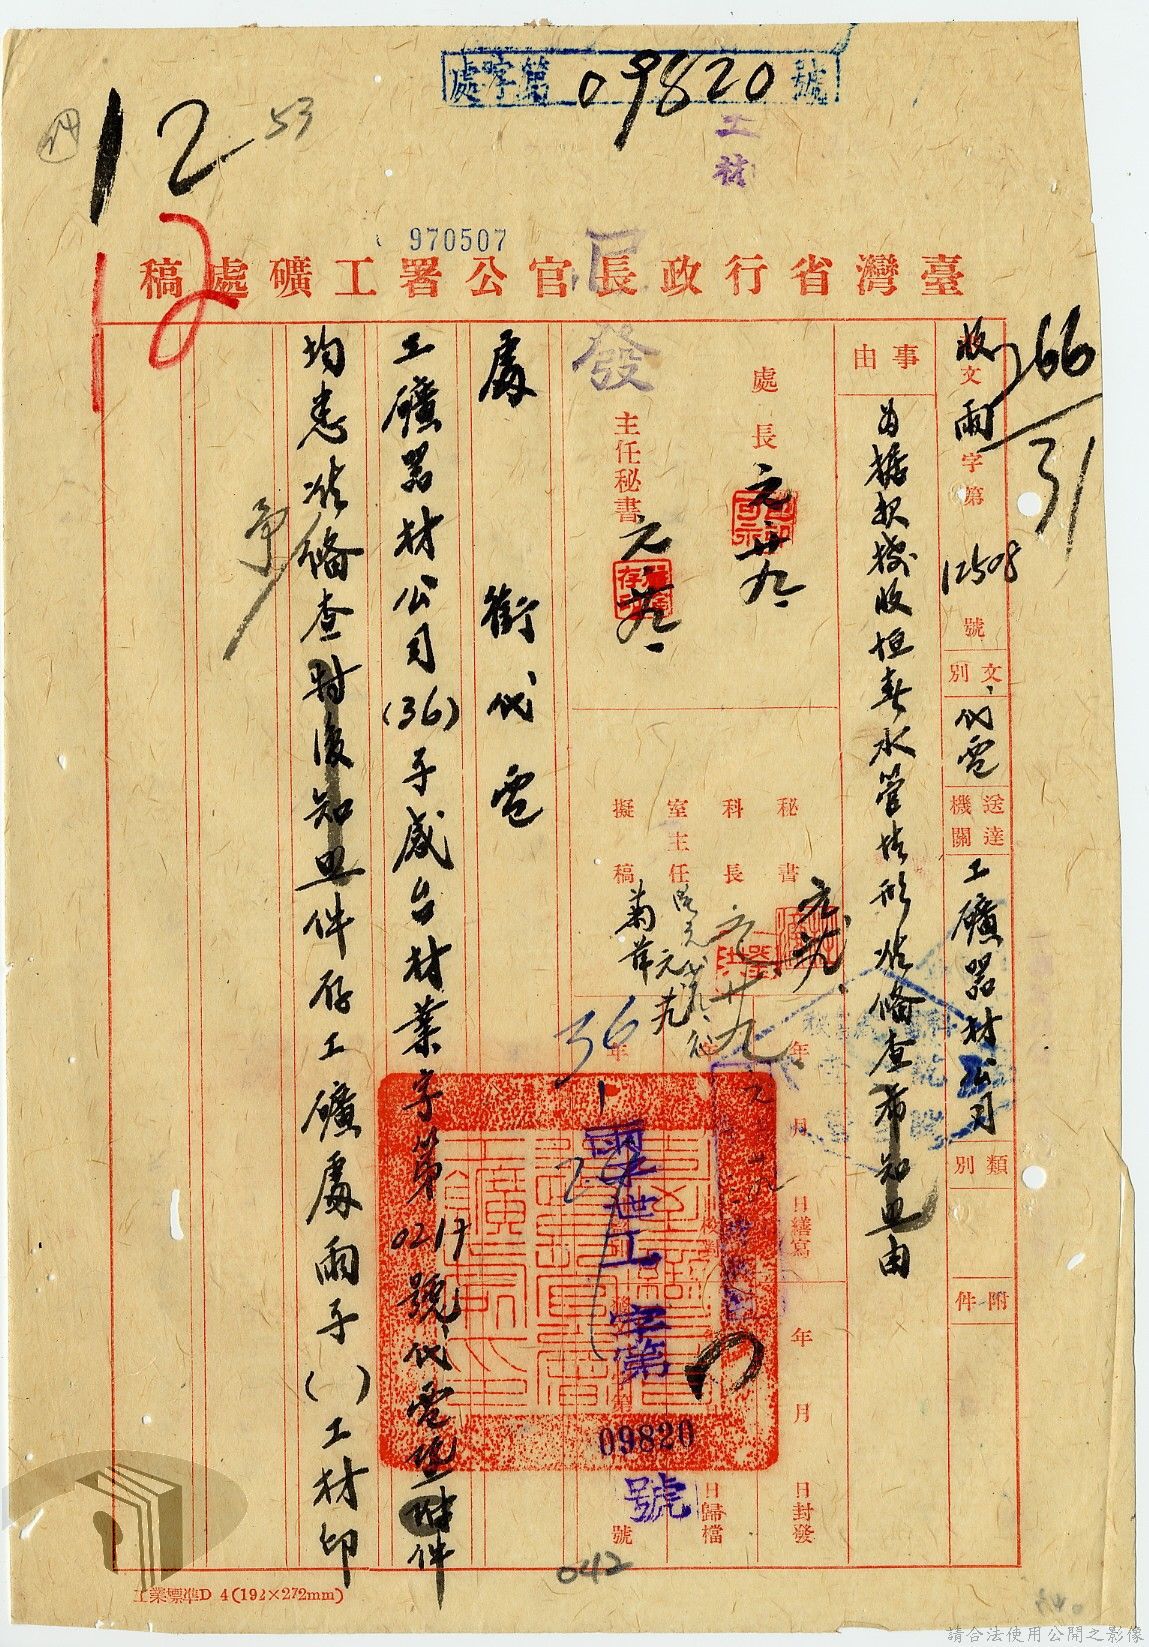 處字第09820號
工材
12
53
970507
臺灣省行政長官公署工礦處稿
12
已發
366
31
收文雨字第12508號
文別
代電
送達機關
工礦器材公司
類別
附件
事由
為據報接收恒春水管情形准備查希知照由
處長
元廿九
主任秘書
元廿九
秘書
科長
室主任
擬稿
元廿九
36年
年
月
日繕寫
年
月
日封發
日歸檔
梁世工字第
09820
號
號
處銜代電
工礦器材公司(36)子感台材業字第0217號代電暨附件
均悉准備查特復知照件存工礦處雨子( )工材印
042
工業標準D 4(192×272mm)
請合法使用公開之影像